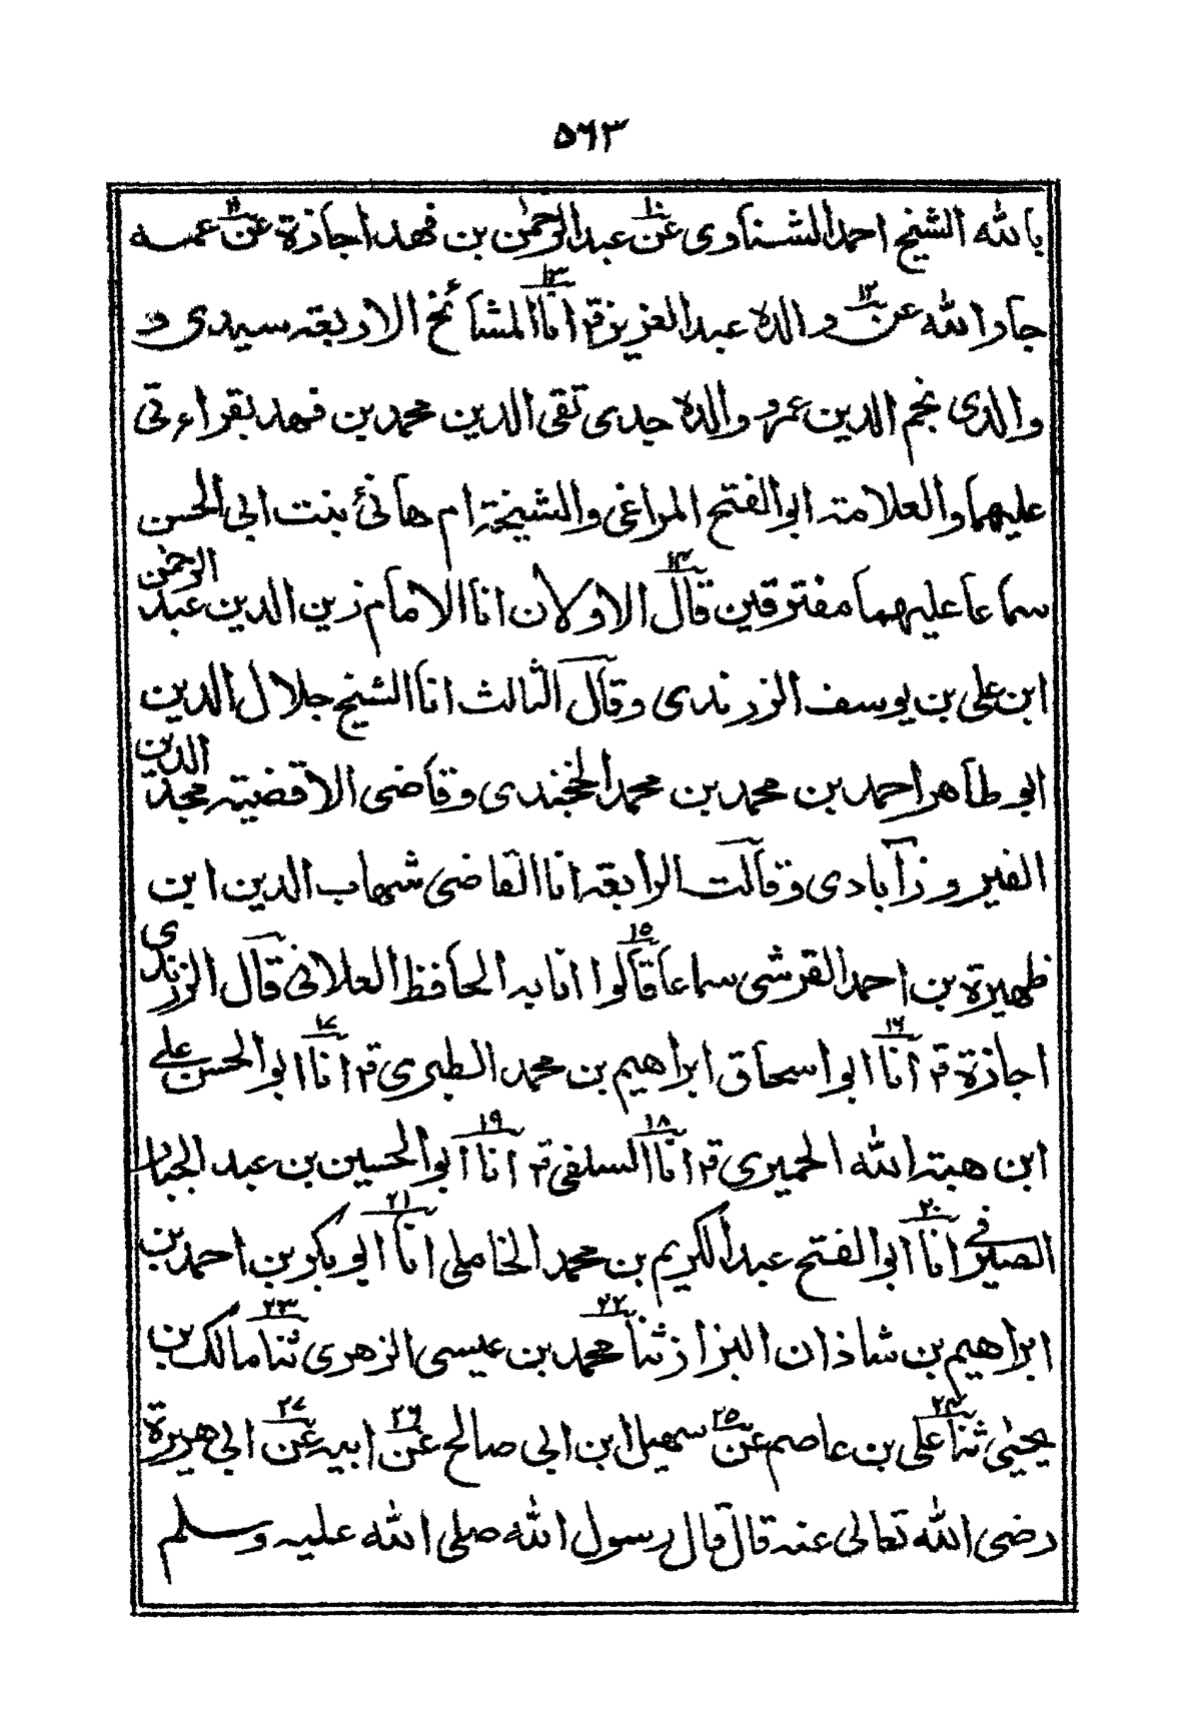 ٥٦٣
بالله الشيخ احمد الشناوى عن ١٠ عبد الرحمٰن بن فهد اجازة عن ١١ عمه
جار الله عن ١٢ والده عبد العزيز قم انا ١٣ المشائخ الاربعة سيدى و
والدى نجم الدين عمرو والده جدى تقى الدين محمد بن فهد بقراءتى
عليهما والعلامة ابو الفتح المراغى والشيخة ام هانئ بنت ابى الحسن
سماعا عليهما مفترقين قال ١٤ الاولان انا الامام زين الدين عبد الرحمٰن
ابن على بن يوسف الزرندى وقال الثالث انا الشيخ جلال الدين
ابو طاهر احمد بن محمد بن محمد الخجندى وقاضى الاقضية مجد الدين
الفيروزآبادى وقالت الرابعة انا القاضى شهاب الدين ابن
ظهيرة بن احمد القرشى سماعا قالوا ١٥ انا به الحافظ العلائى قال الزرندى
اجازة قم انا ١٦ ابو اسحاق ابراهيم بن محمد الطبرى قم انا ١٧ ابو الحسن على
ابن هبة الله الحميرى قم انا ١٨ السلفى قم انا ١٩ ابو الحسين بن عبد الجبار
الصيرفى انا ٢٠ ابو الفتح عبد الكريم بن محمد الخاملى انا ٢١ ابو بكر بن احمد بن
ابراهيم بن شاذان البزاز ثنا ٢٢ محمد بن عيسى الزهرى ثنا ٢٣ مالك بن
يحيٰى ثنا ٢٤ على بن عاصم عن ٢٥ سهيل ابن ابى صالح عن ٢٦ ابيه عن ٢٧ ابى هريرة
رضى الله تعالى عنه قال قال رسول الله صلى الله عليه وسلم